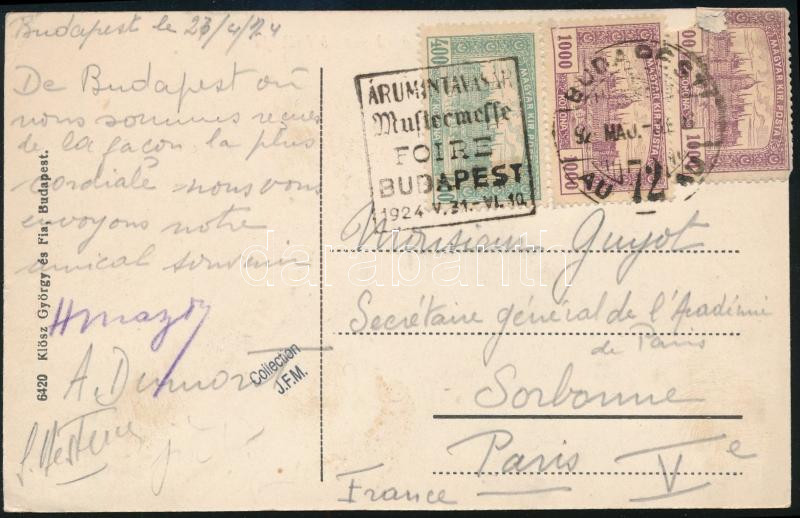 Budapest le 23/4/24
De Budapest où
nous sommes reçus
de la façon la plus
cordiale nous vous
envoyons notre
amical souvenir
6420 Klösz György és Fia, Budapest.
Collection
J.F.M.
ÁRUMINTAVÁSÁR
Mustermesse
FOIRE
BUDAPEST
1924 V.31.-VI.10.
400
1000
MAGYAR KIR. POSTA
1000
1000
MAGYAR KIR. POSTA
1000
BUDAPEST
72
Monsieur Guyot
Secrétaire général de l'Académie
de Paris
Sorbonne
Paris Ve
France
darabanth